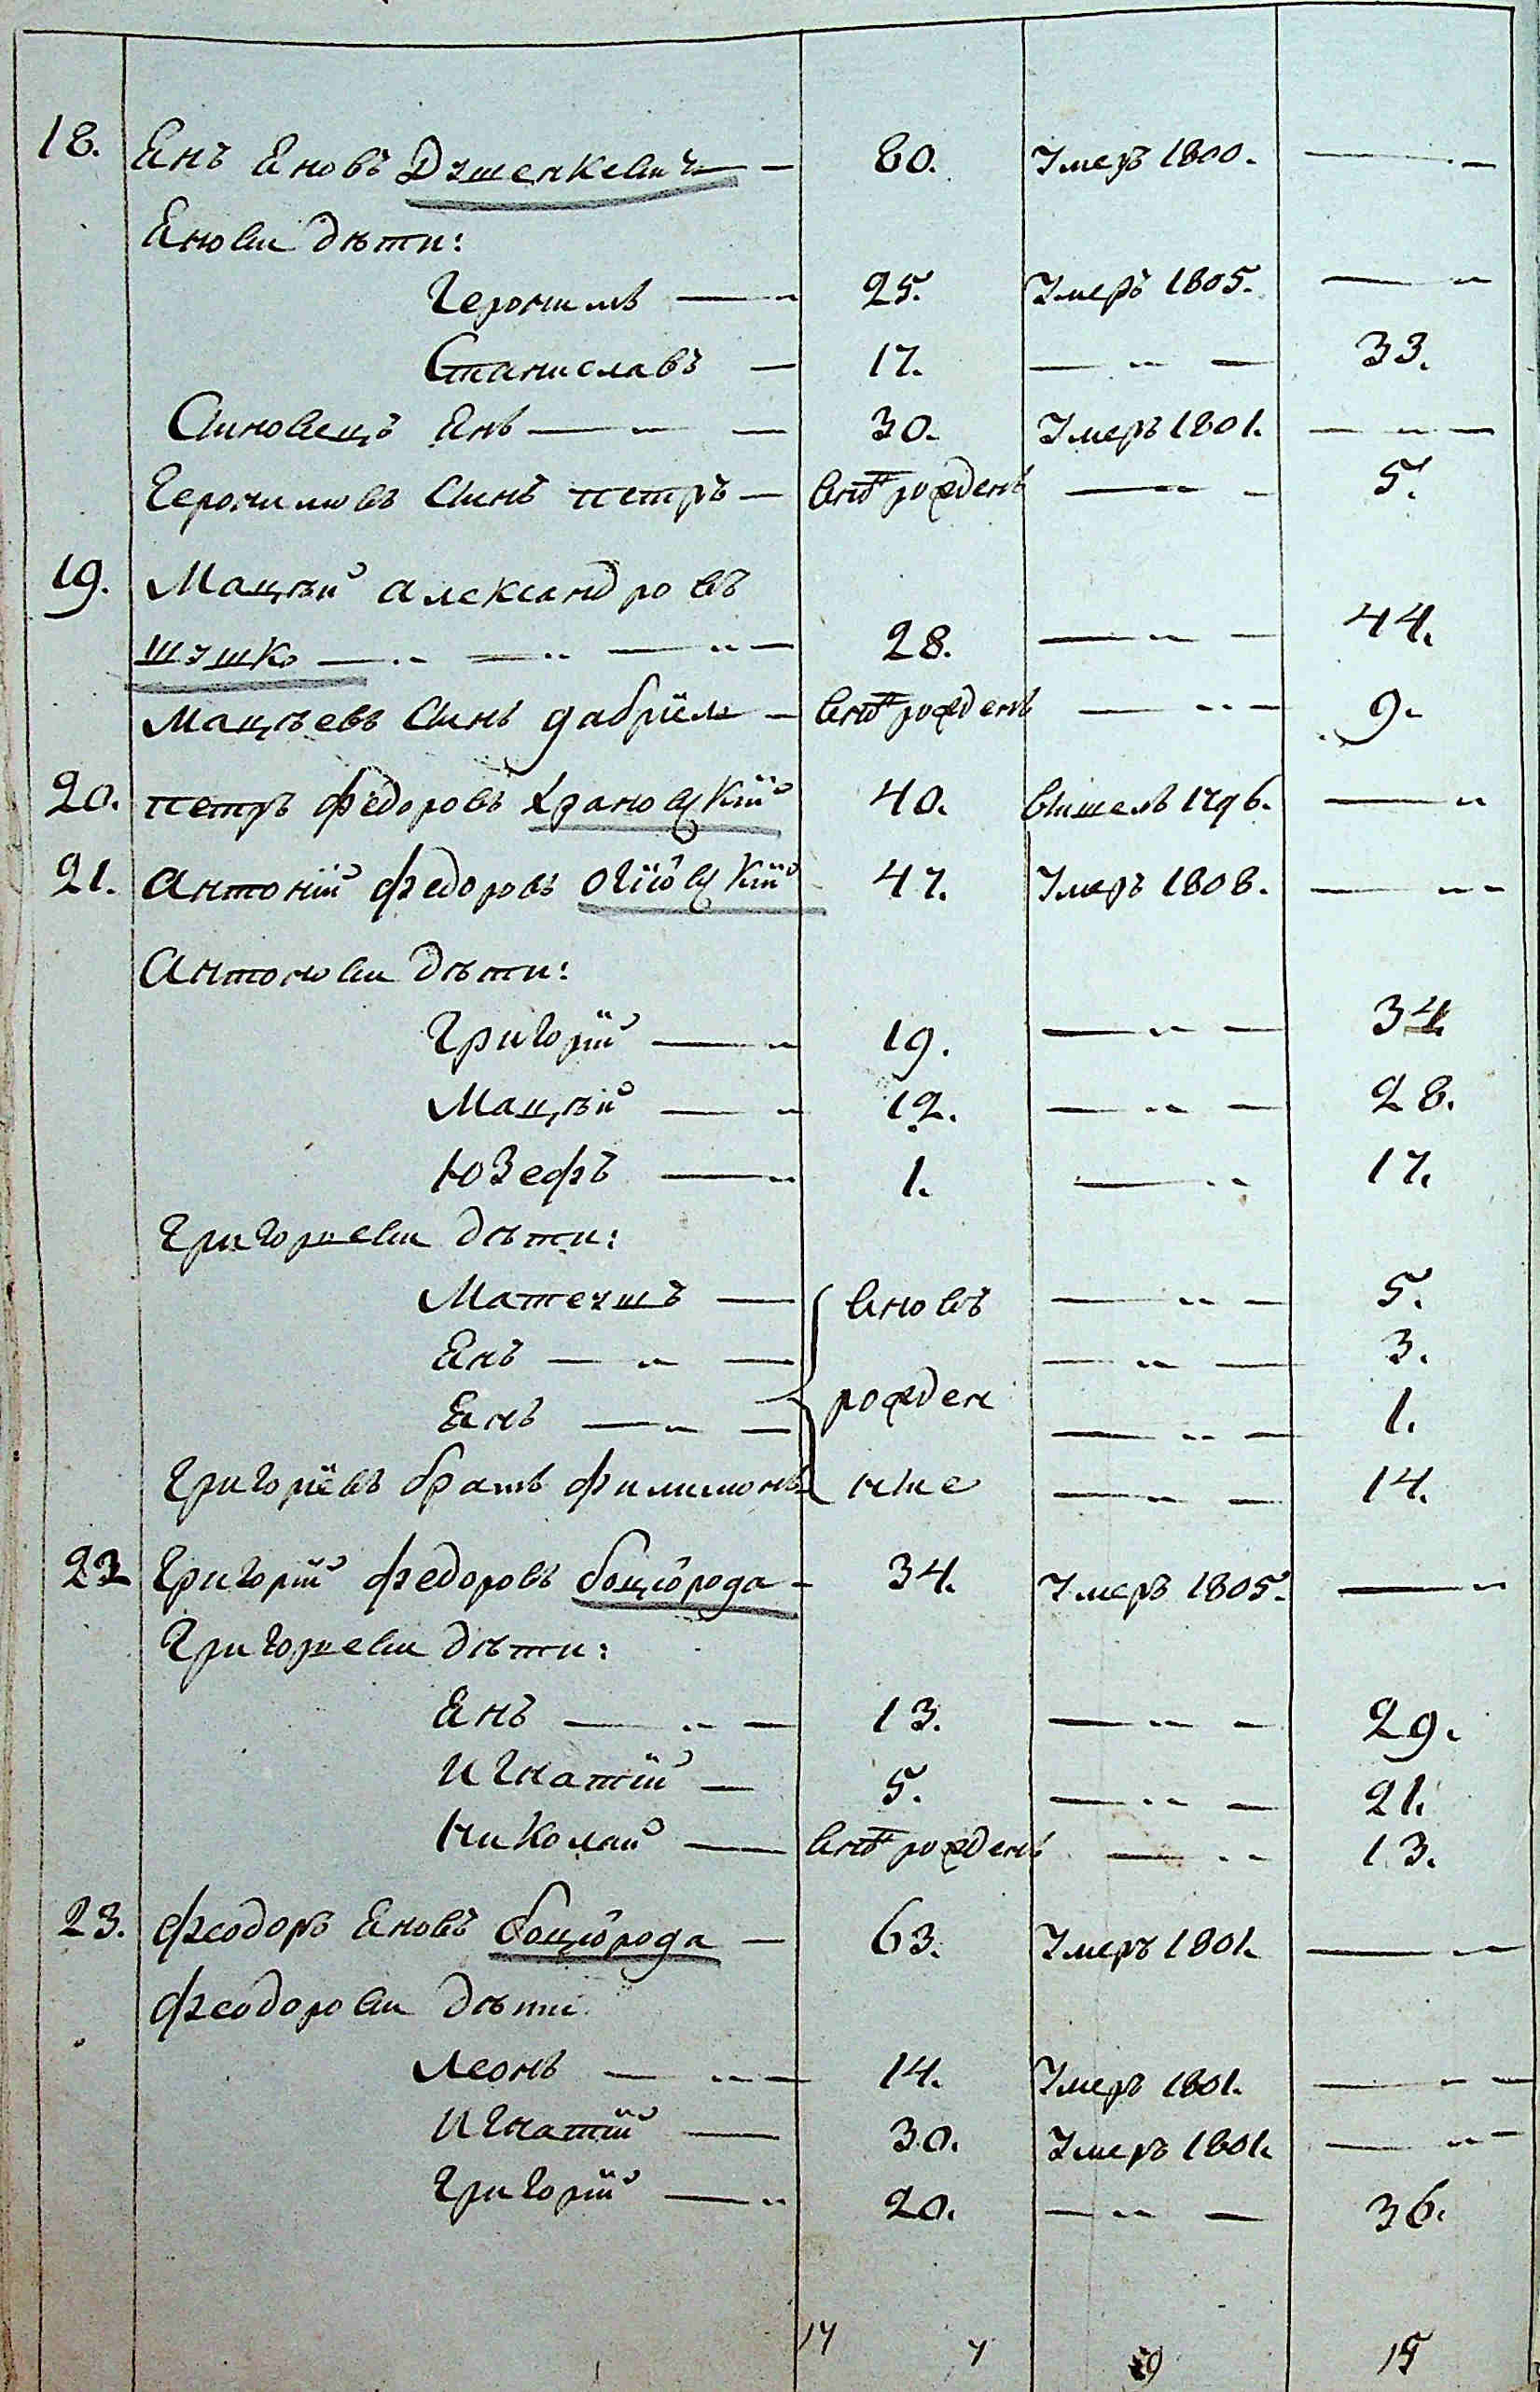 18. Янъ Яновъ Душенкевичъ — 80. Умеръ 1800. —
Яновы дѣти:
Геронимъ — 25. Умеръ 1805. —
Станиславъ — 17. — 33.
Сыновецъ Янъ — 30. Умеръ 1801. —
Геронимовъ сынъ Петръ — внѡвь рожденъ — 5.
19. Мацѣй Александровъ
Шушко — 28. — 44.
Мацѣевъ сынъ Габріель — внѡвь рожденъ — 9.
20. Петръ Федоровъ Храновскій 40. Вышелъ 1796. —
21. Антоній Федоровъ 47. Умеръ 1808. —
Антоновы дѣти:
Григорій — 19. — 34.
Мацѣй — 12. — 28.
Юзефъ — 1. — 17.
Григориевы дѣти:
Матеушъ — вновь — 5.
Янъ — — 3.
рожден
Янъ — — 1.
Григоріевъ братъ Филимонъ ные — 14.
22 Григорій Федоровъ Бѡцюрода — 34. Умеръ 1805. —
Григориевы дѣти:
Янъ — 13. — 29.
Игнатій — 5. — 21.
Николай — внѡвь рожденъ — 13.
23. Феодоръ Яновъ Бѡцюрода — 63. Умеръ 1801. —
Феодоровы дѣти
Леонъ — 14. Умеръ 1801. —
Игнатій — 30. Умеръ 1801. —
Григорій — 20. — 36.
14 9 15